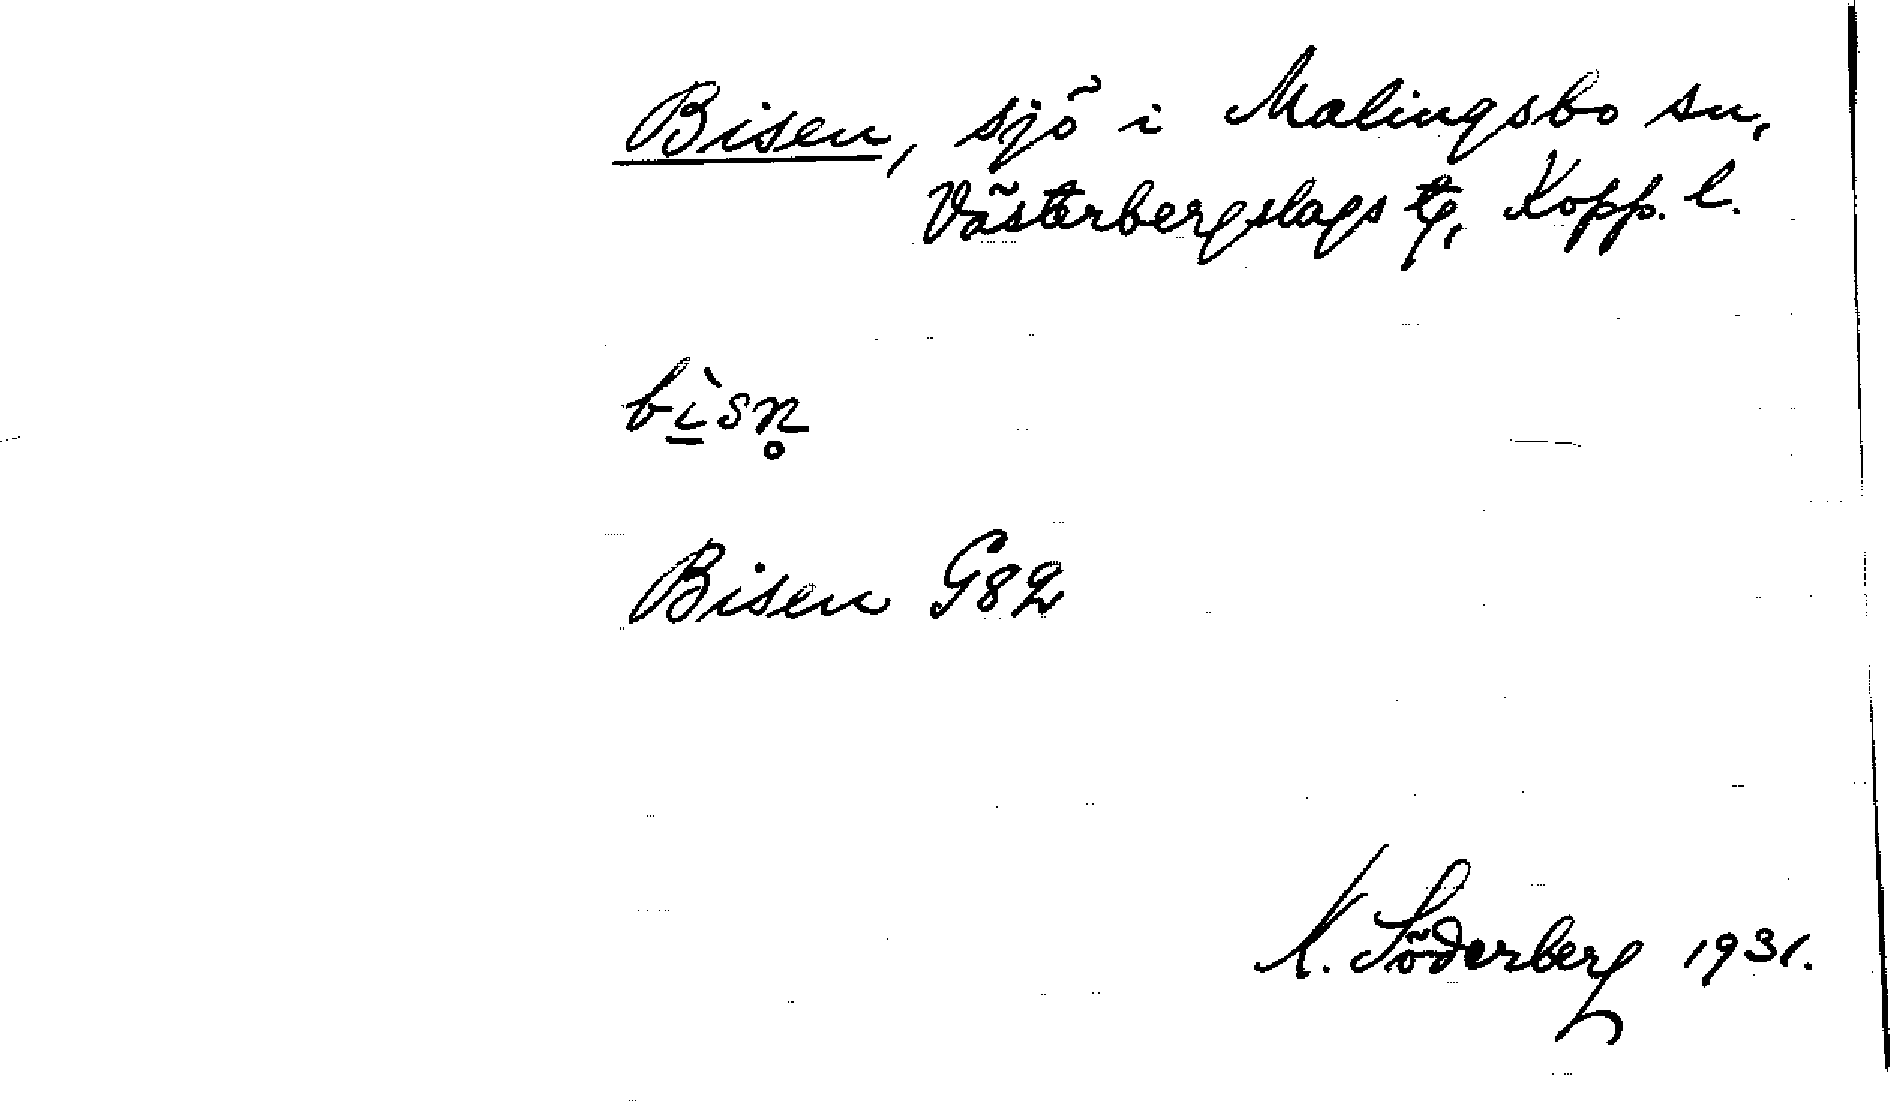 Bisen, sjö i Malingsbo sn,
Västerbergslags tg, Kopp. l.
bì̱sn̥
Bisen G82
K. Söderberg 1931.